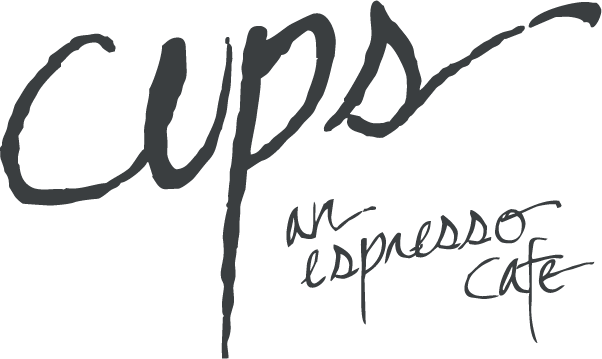 cups
an
espresso
cafe